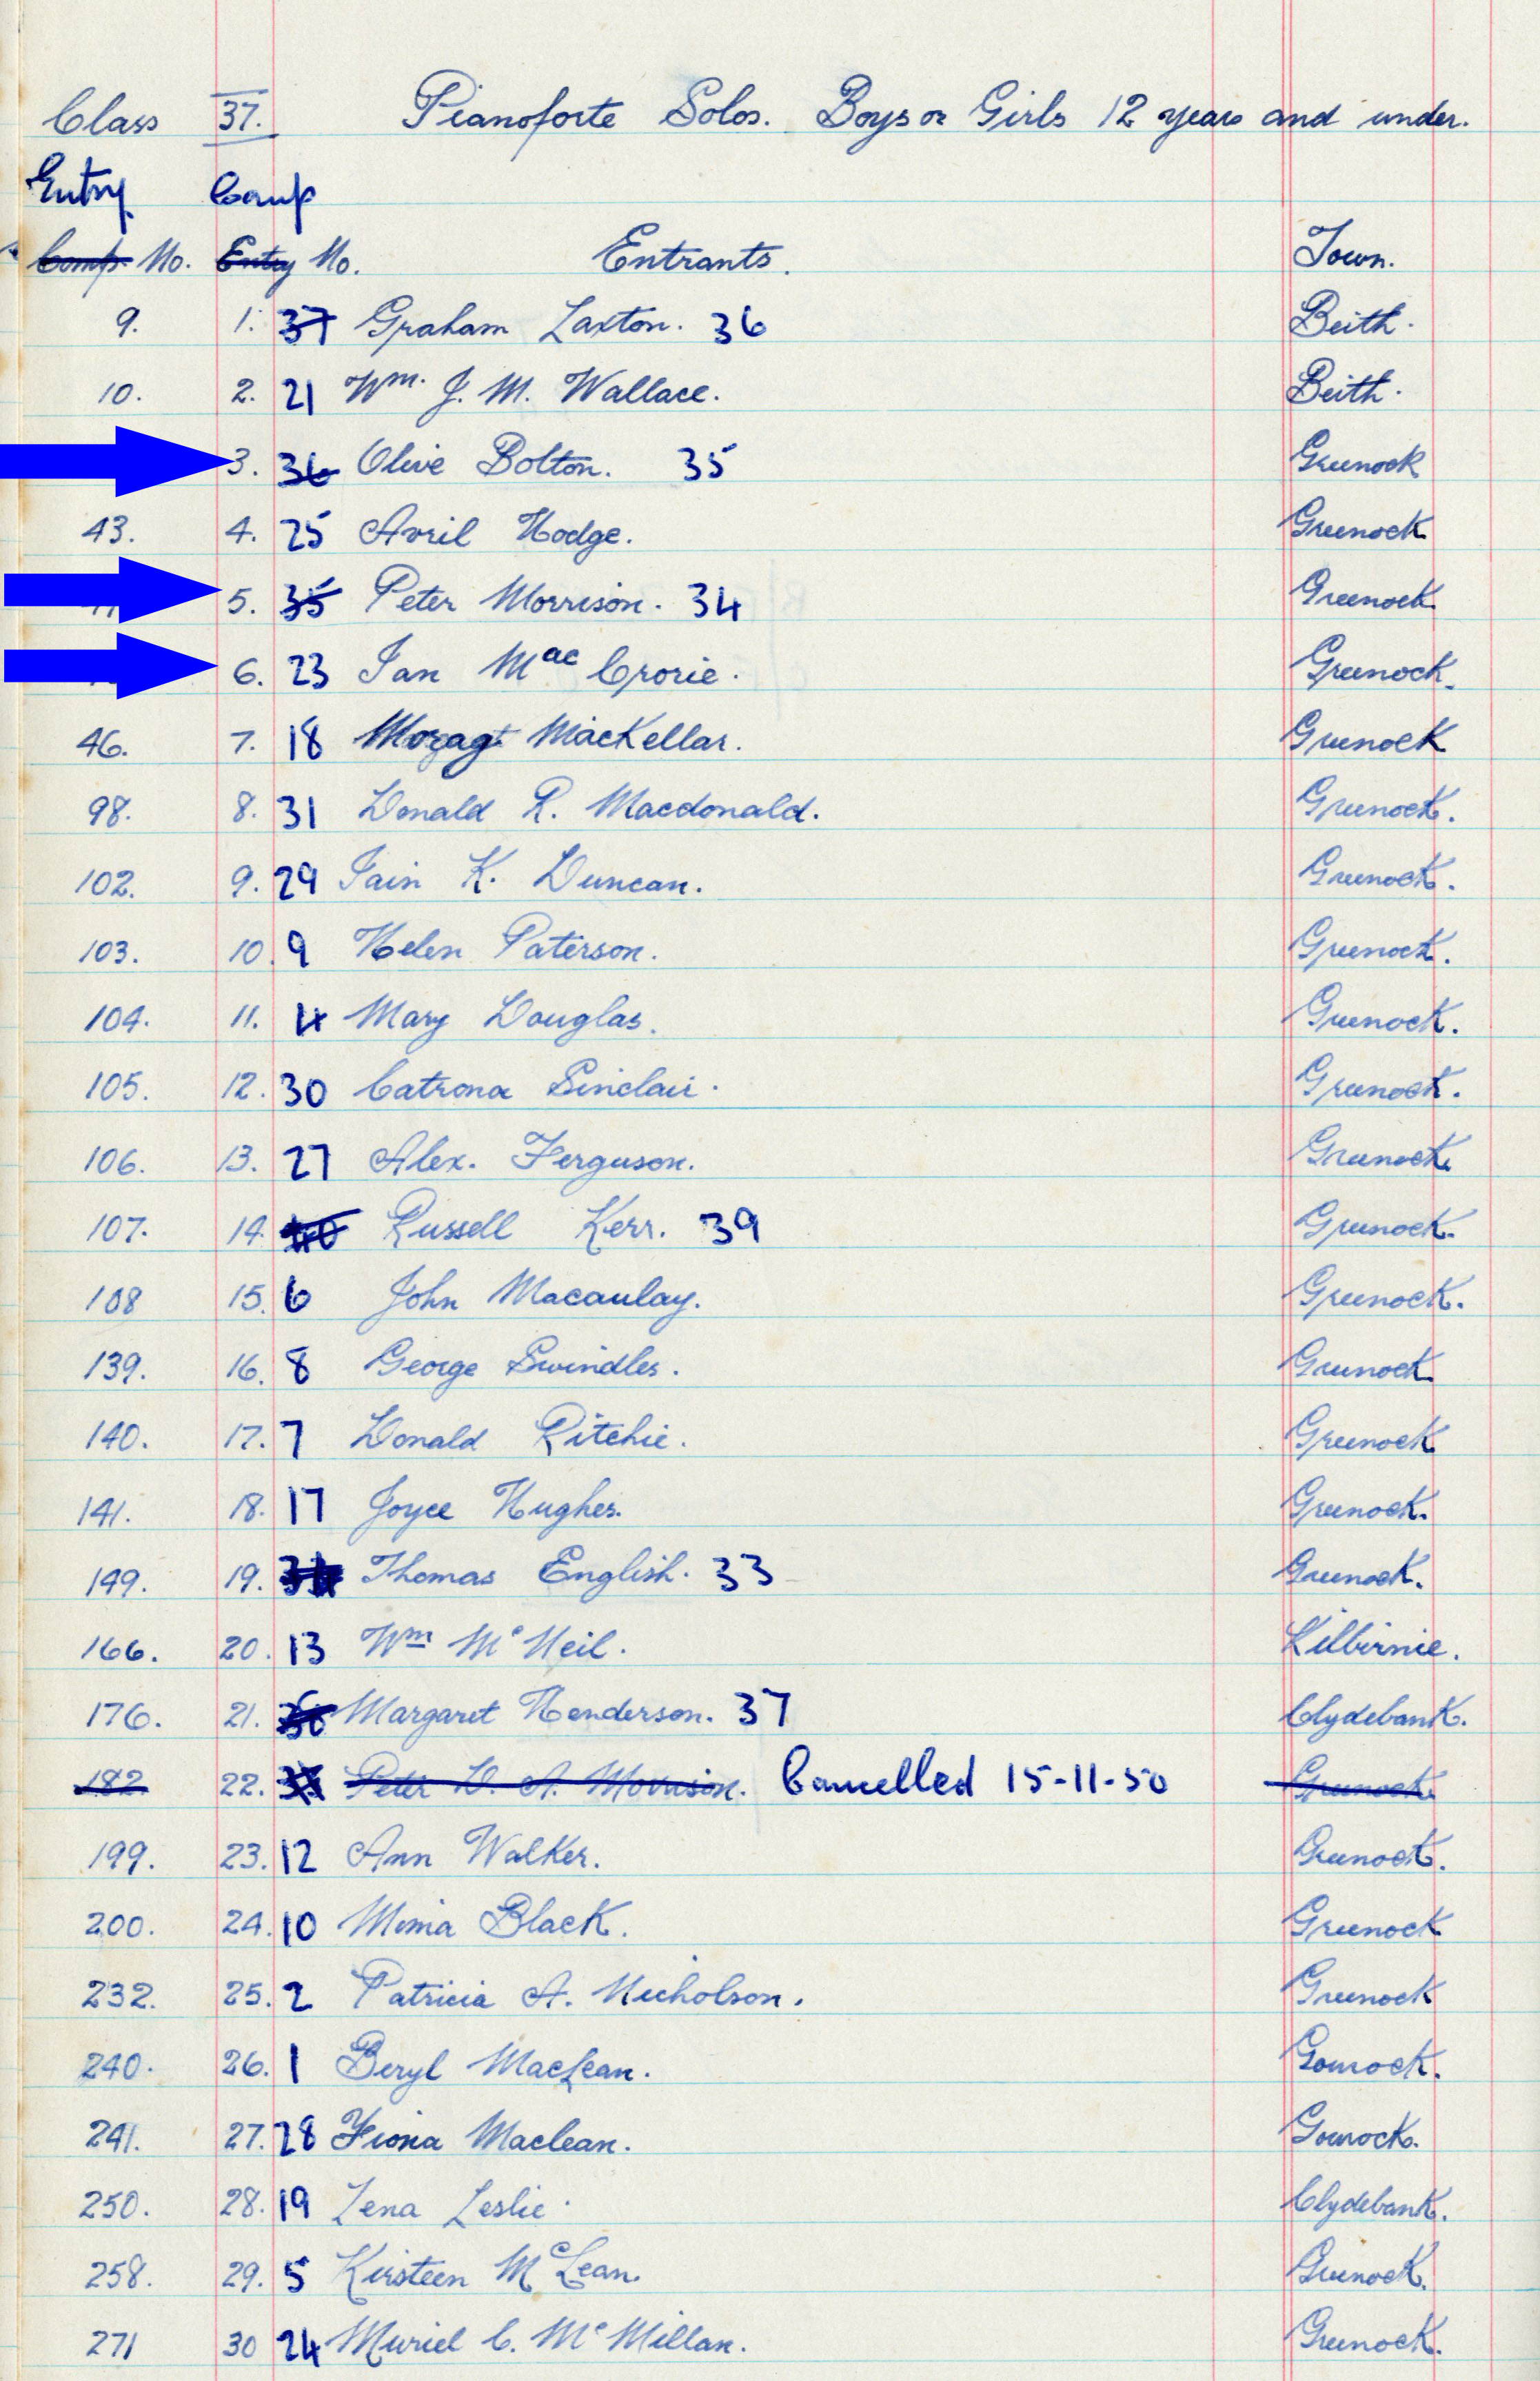 Class 37. Pianoforte Solos. Boys or Girls 12 years and under.
Entry Comp
Comp. No. Entry No. Entrants. Town.
9. 1. 37 Graham Laxton. 36 Beith.
10. 2. 21 Wm. J. M. Wallace. Beith.
3. 36 Olive Bolton. 35 Greenock
43. 4. 25 Avril Hodge. Greenock
5. 35 Peter Morrison. 34 Greenock.
6. 23 Ian MacCrorie. Greenock.
46. 7. 18 MacKellar. Greenock
98. 8. 31 Donald R. Macdonald. Greenock.
102. 9. 29 Iain K. Duncan. Greenock.
103. 10. 9 Helen Paterson. Greenock.
104. 11. Mary Douglas. Greenock.
105. 12. 30 Catrona Sinclair. Greenock.
106. 13. 27 Alex. Ferguson. Greenock.
107. 14. 40 Russell Kerr. 39 Greenock.
108 15. 6 John Macaulay. Greenock.
139. 16. 8 George Swindles. Greenock.
140. 17. 7 Donald Ritchie. Greenock
141. 18. 17 Joyce Hughes. Greenock.
149. 19. Thomas English. 33 Greenock.
166. 20. 13 Wm McNeil. Kilbirnie.
176. 21. Margaret Henderson. 37 Clydebank.
182 22. Peter D. A. Morrison. Cancelled 15-11-50 Greenock
199. 23. 12 Ann Walker. Greenock.
200. 24. 10 Mima Black. Greenock
232. 25. 2 Patricia A. Nicholson. Greenock
240. 26. 1 Beryl MacLean. Gourock.
241. 27. 28 Fiona Maclean. Gourock.
250. 28. 19 Lena Leslie. Clydebank.
258. 29. 5 Kirsteen McLean. Greenock.
271 30 24 Muriel C. McMillan. Greenock.